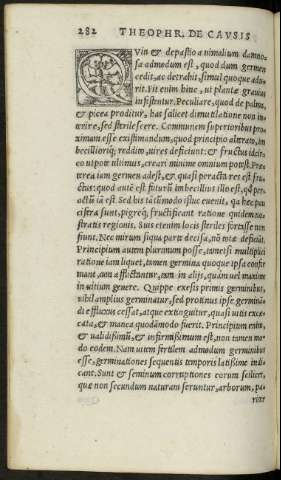 282 THEOPHR. DE CAVSIS
Qvin & depastio animalium damno-
sa admodum est, quod dum germen
edit, ac detrahit, simul quoque adu-
rit. Fit enim hinc, ut plantæ grauius
infistentur. Peculiare, quod de palma,
& picea proditur, has scilicet dimutilatione non in-
terire, sed sterilescere. Communem superioribus pro-
ximam esse existimandum, quod principio alterato, im-
becilliorisq; reddito, uires deficiunt: & fructus didici-
eo utpote ultimus, creari minime omnium potest. Præ-
terea iam germen adest, & quasi peracta res est fru-
ctus: quod autē est futurū imbecillus illo est, qđ per-
actū iā est. Sed his talū modo istuc euenit, quæ hec pa-
ci fera sunt, pigreq; fructificant ratione quidem no-
stratis regionis. Suis etenim locis steriles fortisse non
fiunt. Nec mirum si qua parte decisa, nō tota deficiāt.
Principium autem pluramum posse, tametsi multiplici
ratione iam liquet, tamen germina quoque ipsa confir
mant, non afflictantur, non in alijs, quàm uel maxime
in uitium genere. Quippe exesis primis germinibus,
nihil amplius germinatur, sed protinus ipse germinā-
di effluxus cessat, atque extinguitur, quasi uitis excæ-
cata, & manca quodāmodo fuerit. Principium enim,
& ualidissimū, & infirmissimum est, non tamen mo-
do eodem. Nam uitem fertilem admodum germinibus
esse, germinationes sequentis temporis latissime indi-
cant. Sunt & seminum corruptiones eorum scilicet,
quæ non secundum naturam seruntur, arborum, pa-
riter